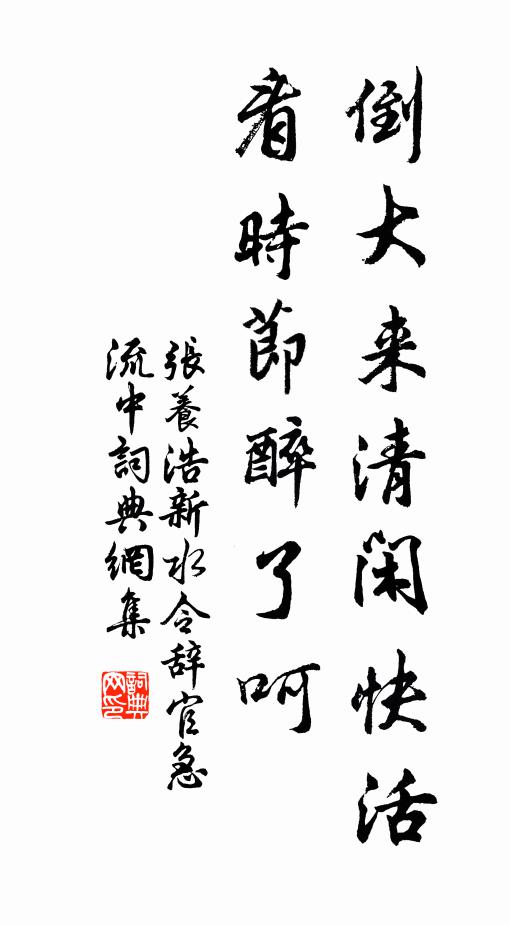 倒大来清閑快活
看時節醉了呵
張養浩新水令辞官急
流中詞典網集
詞典网印